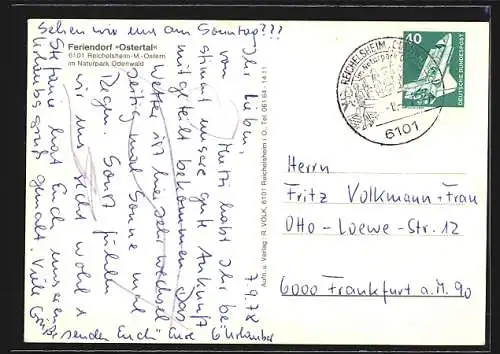 Sehen wir uns am Sonntag???
Feriendorf »Ostertal«
6101 Reichelsheim-M.-Ostern
im Naturpark Odenwald
7.9.78
Ihr Lieben,
von Mutti habt Ihr be-
stimmt unsere gute Ankunft
mitgeteilt bekommen. Das
Wetter ist hier sehr wechsel
seitig mal Sonne mal
Regen. Sonst fühlen
wir uns recht wohl.
Stefanie hat Euch unseren
Urlaubsgruß gemalt. Viele Grüße
senden Euch Eure 6 Urlauber
Aufn. u. Verlag: R. VOLK, 6101 Reichelsheim i. O., Tel. 061 64 - 14 11
REICHELSHEIM
6101
40
DEUTSCHE BUNDESPOST
Herrn
Fritz Volkmann + Frau
Otto-Loewe-Str. 12
6000 Frankfurt a.M. 90